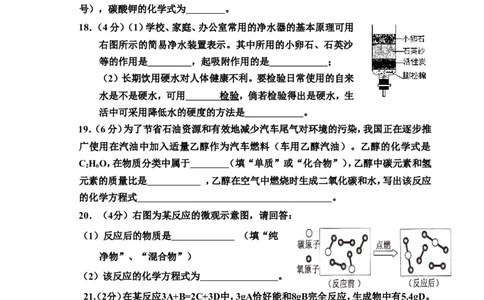 号），碳酸钾的化学式为________。
18.（4分）（1）学校、家庭、办公室常用的净水器的基本原理可用
右图所示的简易净水装置表示。其中所用的小卵石、石英沙
等的作用是________，起吸附作用的是__________；
（2）长期饮用硬水对人体健康不利。要检验日常使用的自来
水是不是硬水，可用______检验，倘若检验得出是硬水，生
活中可采用降低水的硬度的方法是__________。
小卵石
石英沙
活性炭
膨松棉
19.（6分）为了节省石油资源和有效地减少汽车尾气对环境的污染，我国正在逐步推
广使用在汽油中加入适量乙醇作为汽车燃料（车用乙醇汽油）。乙醇的化学式是
C₂H₆O，在物质分类中属于_______（填“单质”或“化合物”），乙醇中碳元素和氢
元素的质量比是__________，乙醇在空气中燃烧时生成二氧化碳和水，写出该反应
的化学方程式____________________________________。
20．（4分）右图为某反应的微观示意图，请回答：
（1）反应后的物质是____________（填“纯
净物”、“混合物”）
（2）该反应的化学方程式为______________。
碳原子
氧原子
点燃
（反应前）
（反应后）
21.(2分)在某反应3A+B=2C+3D中，3gA恰好能和8gB完全反应，生成物中有5.4gD。